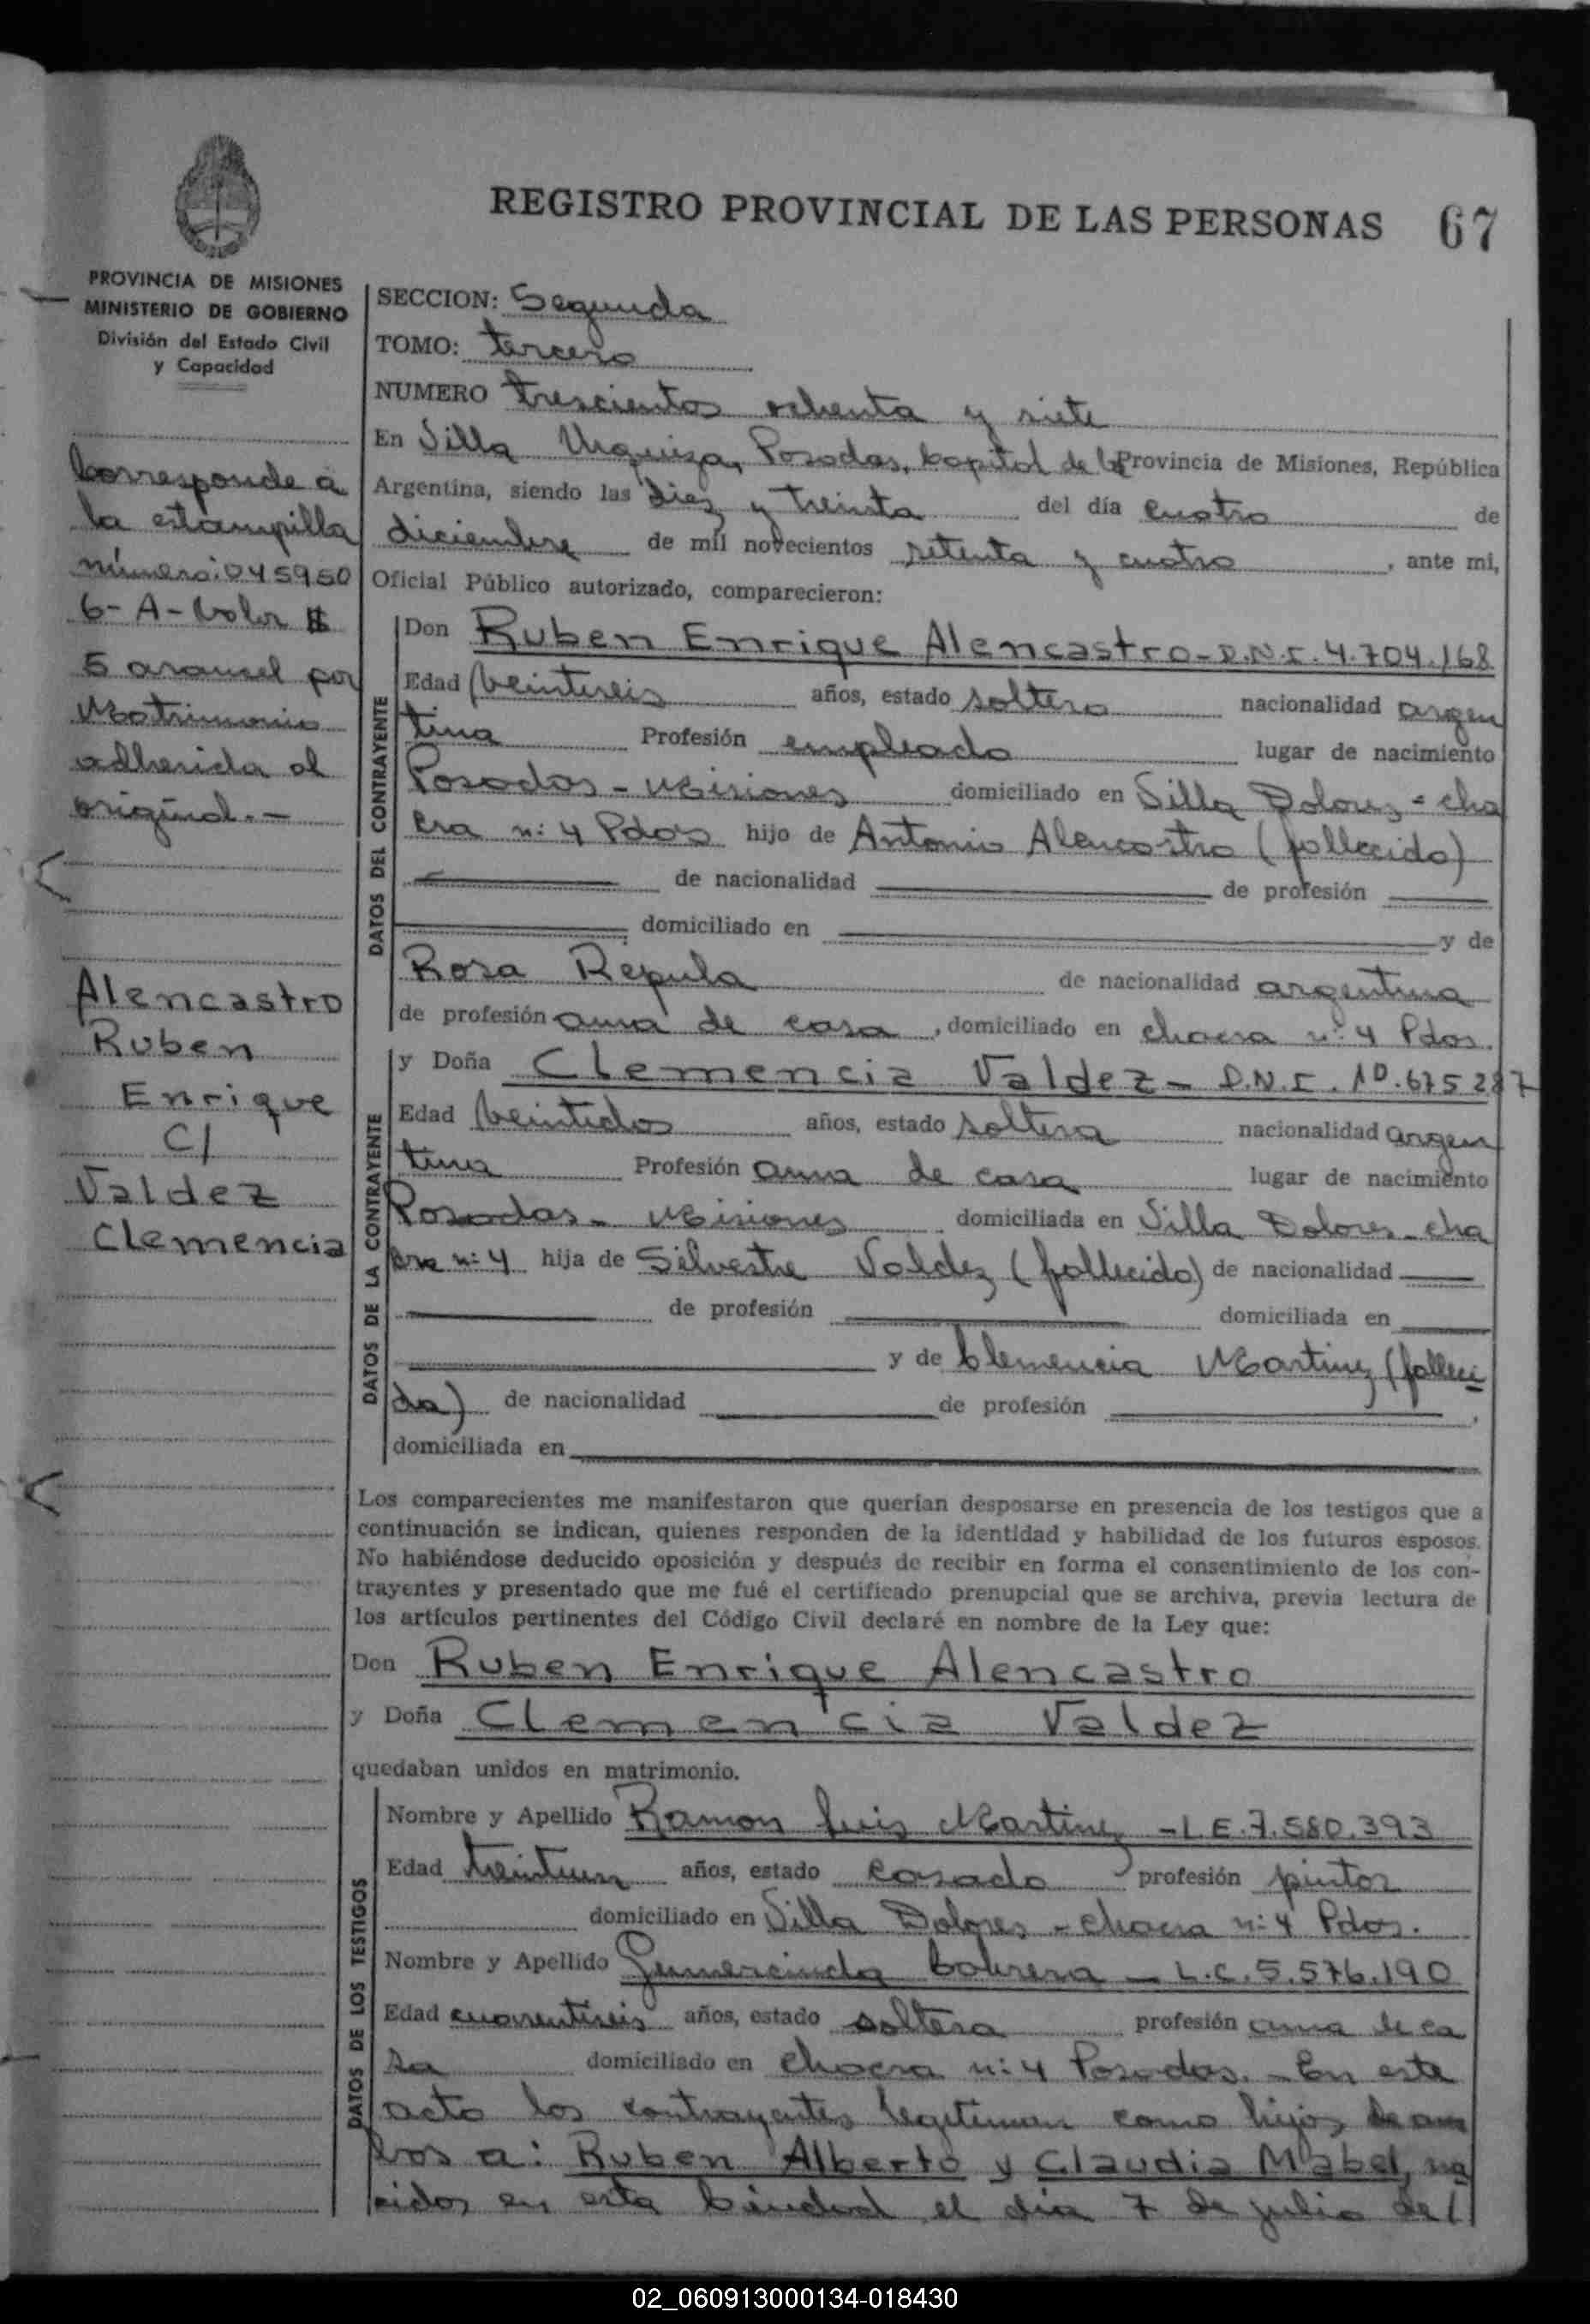 REGISTRO PROVINCIAL DE LAS PERSONAS 67
PROVINCIA DE MISIONES
MINISTERIO DE GOBIERNO
División del Estado Civil
y Capacidad
Corresponde a
la estampilla
número: 045950
6-A-Valor $
5 arancel por
Matrimonio
adherida al
original.-
Alencastro
Ruben
Enrique
C/
Valdez
Clemencia
SECCION: Segunda
TOMO: tercero
NUMERO trescientos ochenta y siete
En Villa Urquiza, Posadas, Capital de la Provincia de Misiones, República
Argentina, siendo las diez y treinta del día cuatro de
diciembre de mil novecientos setenta y cuatro, ante mi,
Oficial Público autorizado, comparecieron:
DATOS DEL CONTRAYENTE
Don Ruben Enrique Alencastro-D.N.I. 4.704.168
Edad veintiseis años, estado soltero nacionalidad argen
tina Profesión empleado lugar de nacimiento
Posadas - Misiones domiciliado en Villa Dolores - cha
cra n: 4 Pdas hijo de Antonio Alencastro (fallecido)
de nacionalidad de profesión
domiciliado en y de
Rosa Repula de nacionalidad argentina
de profesión ama de casa, domiciliado en chacra n: 4 Pdas.
DATOS DE LA CONTRAYENTE
y Doña Clemencia Valdez - D.N.I. 10.675287
Edad veintidos años, estado soltera nacionalidad argen
tina Profesión ama de casa lugar de nacimiento
Posadas - Misiones domiciliada en Villa Dolores - cha
cra n: 4 hija de Silvestre Valdez (fallecido) de nacionalidad
de profesión domiciliada en
y de Clemencia Martinez (falleci
da) de nacionalidad de profesión ,
domiciliada en
Los comparecientes me manifestaron que querían desposarse en presencia de los testigos que a
continuación se indican, quienes responden de la identidad y habilidad de los futuros esposos.
No habiéndose deducido oposición y después de recibir en forma el consentimiento de los con-
trayentes y presentado que me fué el certificado prenupcial que se archiva, previa lectura de
los artículos pertinentes del Código Civil declaré en nombre de la Ley que:
Don Ruben Enrique Alencastro
y Doña Clemencia Valdez
quedaban unidos en matrimonio.
DATOS DE LOS TESTIGOS
Nombre y Apellido Ramon Luis Martinez - L.E. 7.580.393
Edad treintiun años, estado casado profesión pintor
domiciliado en Villa Dolores - chacra n: 4 Pdas.
Nombre y Apellido Gumercinda Cabrera - L.C. 5.576.190
Edad cuarentiseis años, estado soltera profesión ama de ca
sa domiciliado en chacra n: 4 Posadas. - En este
acto los contrayentes legitiman como hijos de am
bos a: Ruben Alberto y Claudia Mabel, na
cidos en esta Ciudad el dia 7 de julio de 1
02_060913000134-018430